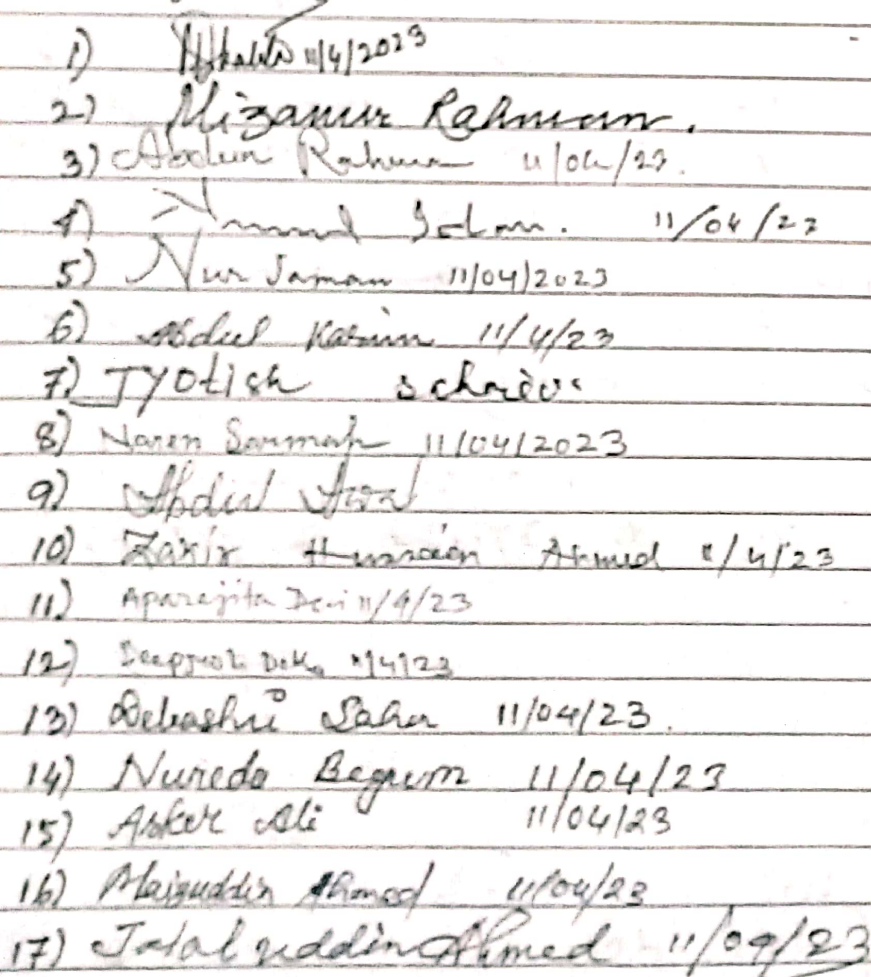 1) 11/4/2023
2) Mizanur Rahman.
3) Abdur Rahman 11/04/23.
4) Islam. 11/04/23
5) Nur Jaman 11/04/2023
6) Abdul Karim 11/4/23
7) JYotish
8) Naren Sarmah 11/04/2023
9) Abdul Awal
10) Zakir Hussain Ahmed 11/4/23
11) Aparajita Devi 11/4/23
12) Deka 11/4/23
13) Debashri Saha 11/04/23.
14) Nureda Begum 11/04/23
15) Asker Ali 11/04/23
16) Ahmed 11/04/23
17) Jalal uddin Ahmed 11/04/23